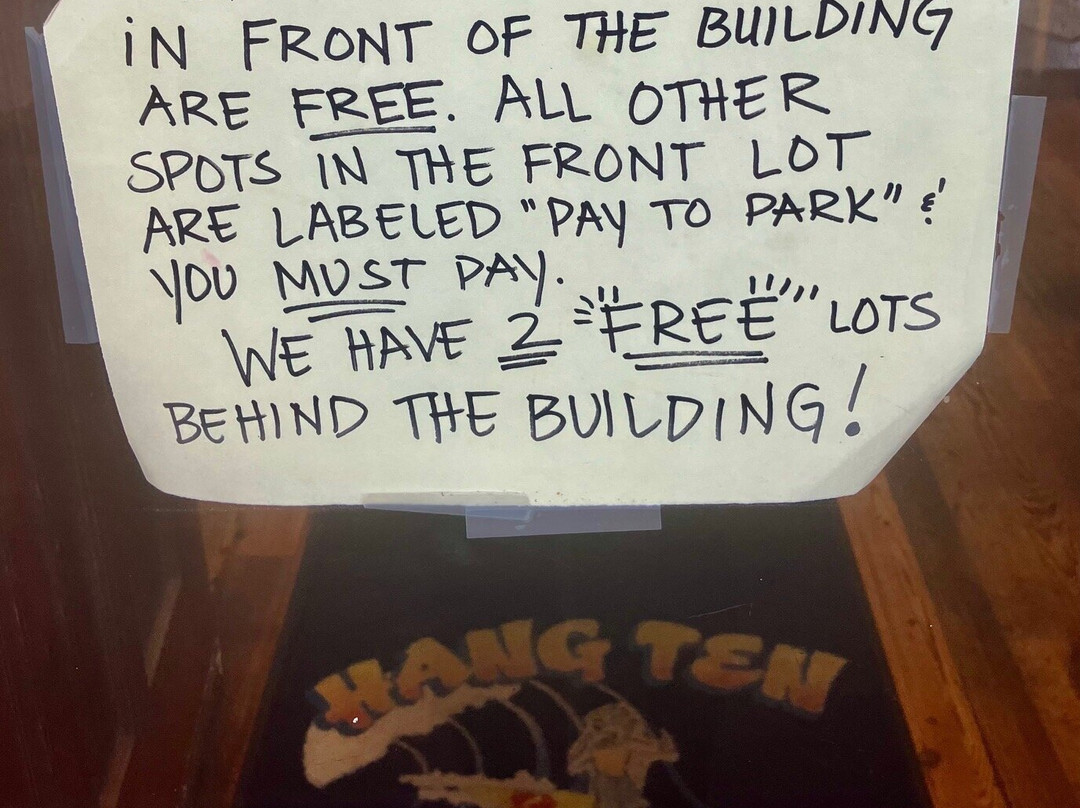 iN FRONT OF THE BUILDING
ARE FREE. ALL OTHER
SPOTS IN THE FRONT LOT
ARE LABELED "PAY TO PARK" &
YOU MUST PAY.
WE HAVE 2 "FREE" LOTS
BEHIND THE BUILDING!
HANG TEN